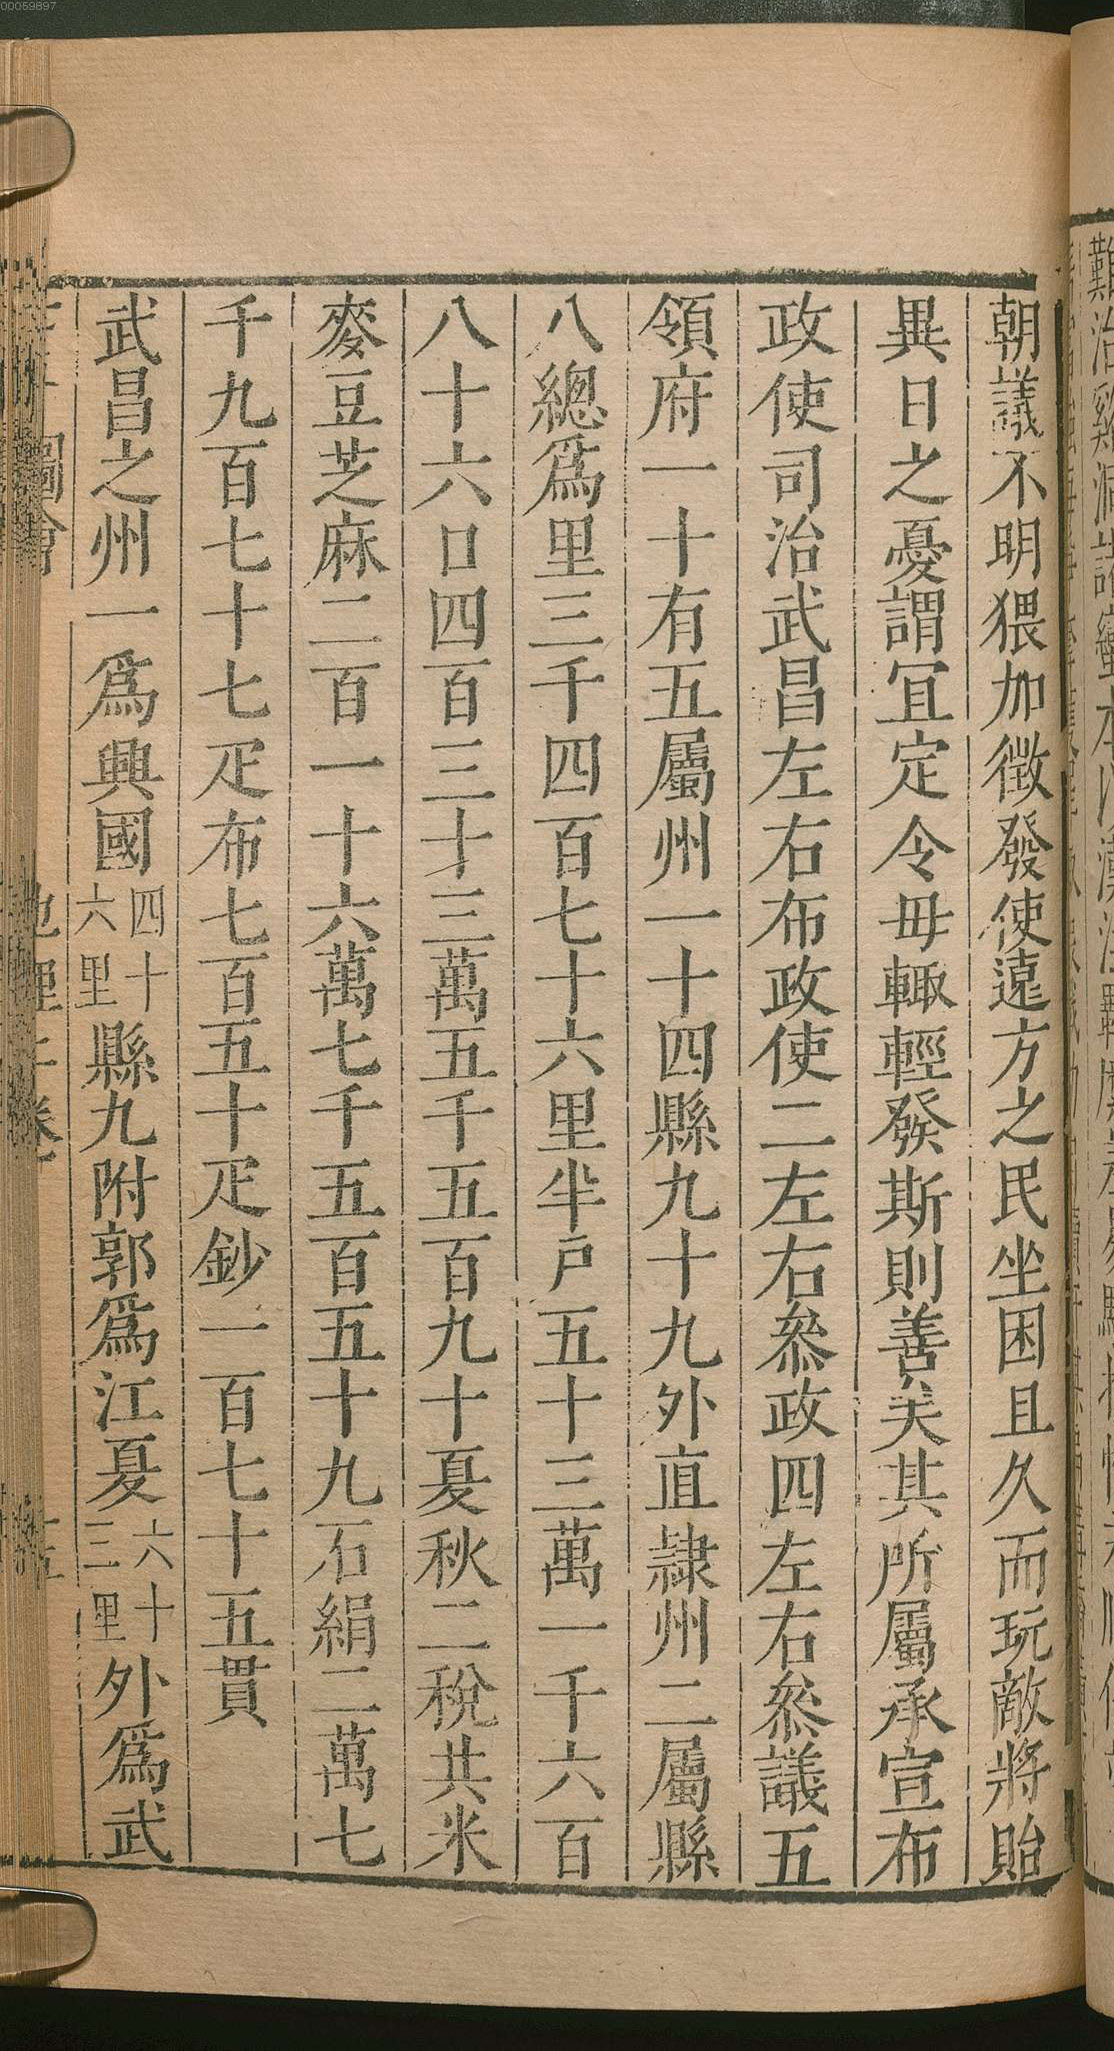 00059897
朝議不明猥加徴發使遠方之民坐困且久而玩敵將貽
異日之憂謂宜定令毋輙輕發斯則善矣其所屬承宣布
政使司治武昌左右布政使二左右叅政四左右叅議五
領府一十有五屬州一十四縣九十九外直隷州二屬縣
八總爲里三千四百七十六里半户五十三萬一千六百
八十六口四百三十三萬五千五百九十夏秋二稅共米
麥豆芝麻二百一十六萬七千五百五十九石絹二萬七
千九百七十七疋布七百五十疋鈔一百七十五貫
武昌之州一爲興國四十六里縣九附郭爲江夏六十三里外爲武